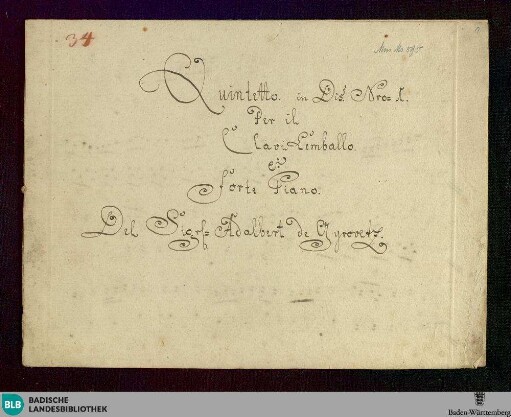 34
Mus. Ms. 595
Quintetto in Dis. Nro= 1.
Per il
Clavi Cembalo
et
Forte Piano.
Del Sigr= Adalbert de Gyrovetz.
BLB BADISCHE
LANDESBIBLIOTHEK
Baden-Württemberg